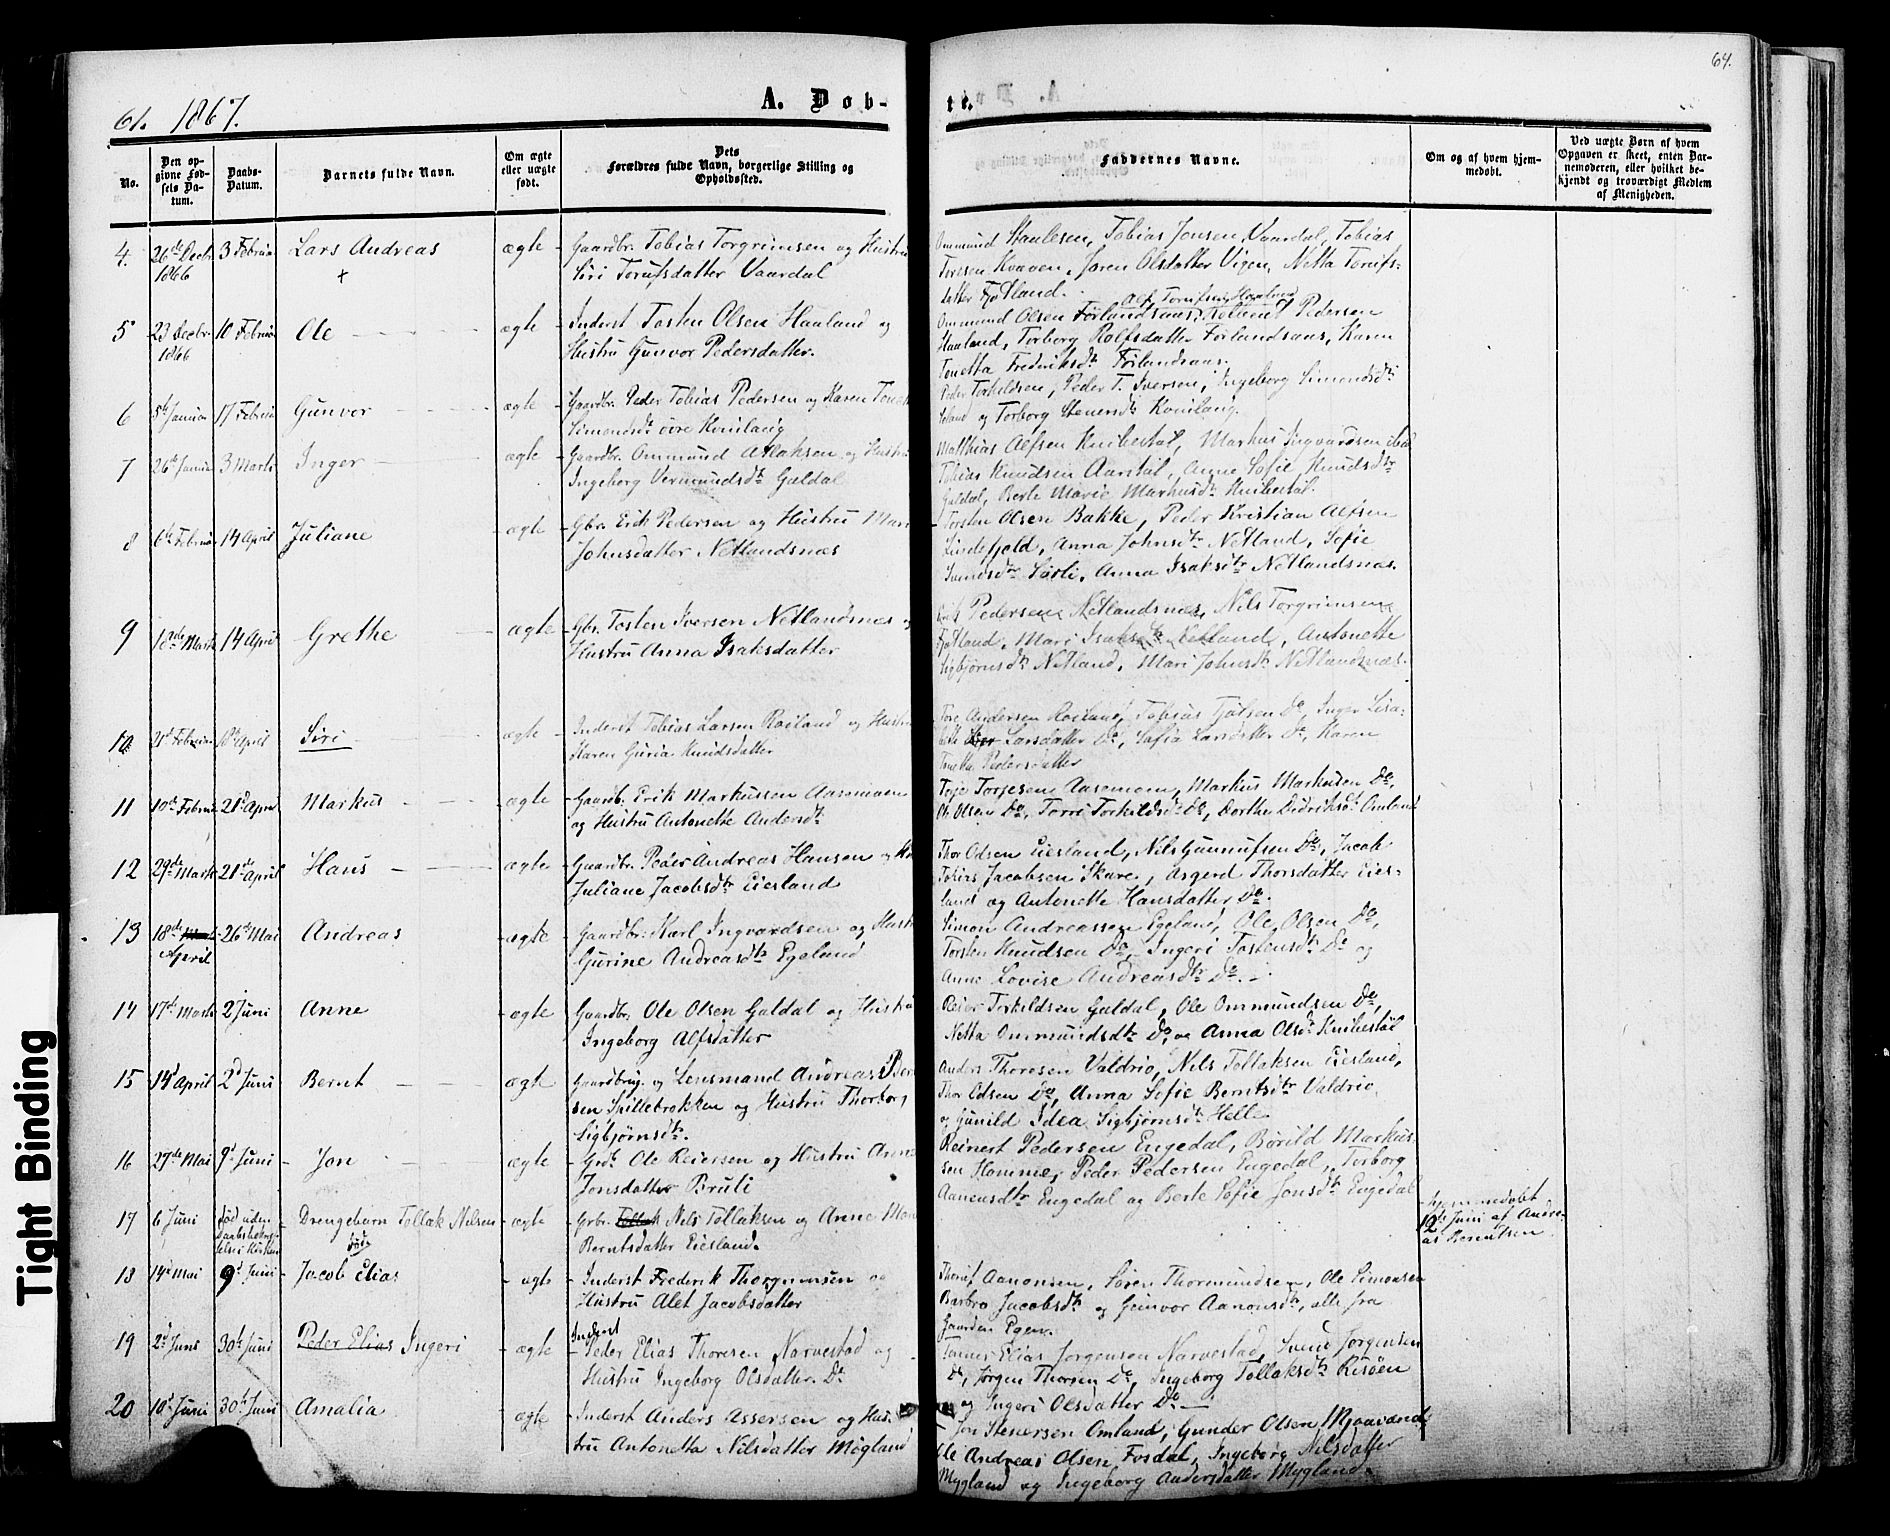 61. 1867.
A. Døb-
te.
64.
No.
Den opgivne Fødsels Datum.
Daabs-Datum.
Barnets fulde Navn.
Om ægte eller uægte født.
Dets Forældres fulde Navn, borgerlige Stilling og Opholdssted.
Faddernes Navne.
Om og af hvem hjemmedøbt.
Ved uægte Børn af hvem Opgaven er skeet, enten Barnemoderen, eller hvilket bekjendt og troværdigt Medlem af Menigheden.
4. 26de Decbr. 1866 3 Februar Lars Andreas + ægte
Gaardbr. Tobias Torgrimsen og Hustru
Siri Torufsdatter Vaardal
Ommund Staalesen, Tobias Jonsen Vaardal, Tobias
Toresen Kvaven, Søren Olsdatter Vigen, Netta Torufs-
datter Fjotland.
5 23 Decbr. 1866 10 Februar Ole ægte
Inderst Tosten Olsen Haaland og
Hustru Gunvor Pedersdatter.
Ommund Olsen Førlandsaas, Pedersen
Haaland, Torborg Rolfsdatter Førlandsaas, Karen
Tonetta Frederiksdtr Førlandsaas.
6 5te Januar 17 Februar Gunvor ægte
Gaardbr. Peder Tobias Pedersen og Karen
Simonsdtr øvre Kvinlaug
Peder Torkeldsen, Peder T. Iversen, Ingeborg Simonsdtr
og Torborg Stenersdtr Kvinlaug.
7 26de Januar 3 Marts Inger ægte
Gaardbr. Ommund Atlaksen og Hustru
Ingeborg Vermundsdtr Galdal
Matthias Alfsen Knibestøl, Markus Ingvardsen ibid
Tobias Knudsen Aarstøl, Anne Sofie Knudsdtr
Galdal, Berte Marie Markusdtr Knibestøl.
8 6te Februar 14 April Juliane ægte
Gbr. Erik Pedersen og Hustru Mari
Johnsdatter Netlandsnæs
Torsten Olsen Bakke, Peder Kristian Alfsen
Lindefjeld, Anna Johnsdtr Netland, Sofie
Svendsdtr Sørli, Anna Isaksdtr Netlandsnæs.
9 18de Marts 14 April Grethe ægte
Gbr. Tosten Iversen Netlandsnæs og
Hustru Anna Isaksdatter
Erik Pedersen Netlandsnæs, Nils Torgrimsen
Fjotland, Mari Isaksdtr Netland, Antonette
Sigbjørnsdtr Netland, Mari Johnsdtr Netlandsnæs.
10 21d Februar 18 April Siri ægte
Inderst Tobias Larsen Røiland og Hustru
Karen Guria Knudsdatter
Tore Andersen Røiland, Tobias Do, Inger Lisa-
bette Larsdatter Do, Sofia Larsdatter Do, Karen
Tonetta Pedersdatter
11 10de Februar 21d April Markus ægte
Gaardbr. Erik Markussen Aasemoen
og Hustru Antonette Andersdtr
Torjesen Aasemoen, Markus Markusen Do,
Ole Olsen Do, Torri Torkildsdtr Do, Dorthe Didriksdtr Omland
12 29de Marts 21de April Hans ægte
Gaardbr. Peder Andreas Hansen og
Juliane Jacobsdtr Eiesland
Thor Odsen Eiesland, Nils Gunnufsen Do, Jacob
Tobias Jacobsen Skare, Asgerd Thorsdatter Eies-
land og Antonette Hansdatter Do.
13 18de April 26de Mai Andreas ægte
Gaardbr. Karl Ingvardsen og Hustru
Gurine Andreasdtr Egeland
Simon Andreassen Egeland, Ole Olsen Do,
Torsten Knudsen Do, Ingeri Tostensdtr Do og
Anne Lovise Andreasdtr Do.
14 17de Marts 2 Juni Anne ægte
Gaardbr. Ole Olsen Galdal og Hustru
Ingeborg Alfsdatter
Reier Torkildsen Galdal, Ole Ommundsen Do,
Netta Ommundsdtr Do og Anna Olsdtr Knibestøl
15 14d April 2d Juni Bernt ægte
Gaardbrug. og Lensmand Andreas Bernt-
sen Spillebrokken og Hustru Thorborg
Sigbjørnsdtr.
Anders Thoresen Valdrio, Nils Tollaksen Eiesland,
Thor Odsen Do, Anna Sofie Berntsdtr Valdrio,
og Gunild Idea Sigbjørnsdtr Helle
16 27de Mai 9d Juni Jon ægte
Grdb. Ole Reiersen og Hustru Anna
Jonsdatter Bruli
Reinert Pedersen Engedal, Børild Markus-
sen Homme, Peder Pedersen Engedal, Torborg
Aanensdtr Engedal og Berte Sofie Jonsdtr Engedal
17 6 Juni død uden Drengebarn Tollak Nilsen død ægte
Grbr. Nils Tollaksen og Anne Mari
Berntsdatter Eiesland.
Hjemmedøbt
12te Juni af Andre-
as Berntsen
18 14de Mai 9d Juni Jacob Elias ægte
Inderst Frederik Thorgrimsen og
Hustru Alet Jacobsdatter
Thoruf Aanonsen, Søren Thormundsen, Ole Simonsen
Barbro Jacobsdtr og Gunvor Aanonsdtr, alle fra
Gaarden Egen.
19 2d Juni 30te Juni Peder Elias Ingeri ægte
Inderst
Peder Elias Thoresen Narvestad og
Hustru Ingeborg Olsdatter Do
Tønnes Elias Jørgensen Narvestad, Svend Jørgensen
Do, Jørgen Thorsen Do, Ingeborg Tollaksdtr Risøen
og Ingeri Olsdatter Do
20 10d Juni 30te Juni Amalia ægte
Inderst Anders Assersen og Hus-
tru Antonetta Nilsdatter Møgland
Jon Stenersen Omland, Gunder Olsen Mjaavand,
Ole Andreas Olsen Fosdal, Ingeborg Nilsdatter
Mygland og Ingeborg Andersdatter Mygland.
Tight Binding